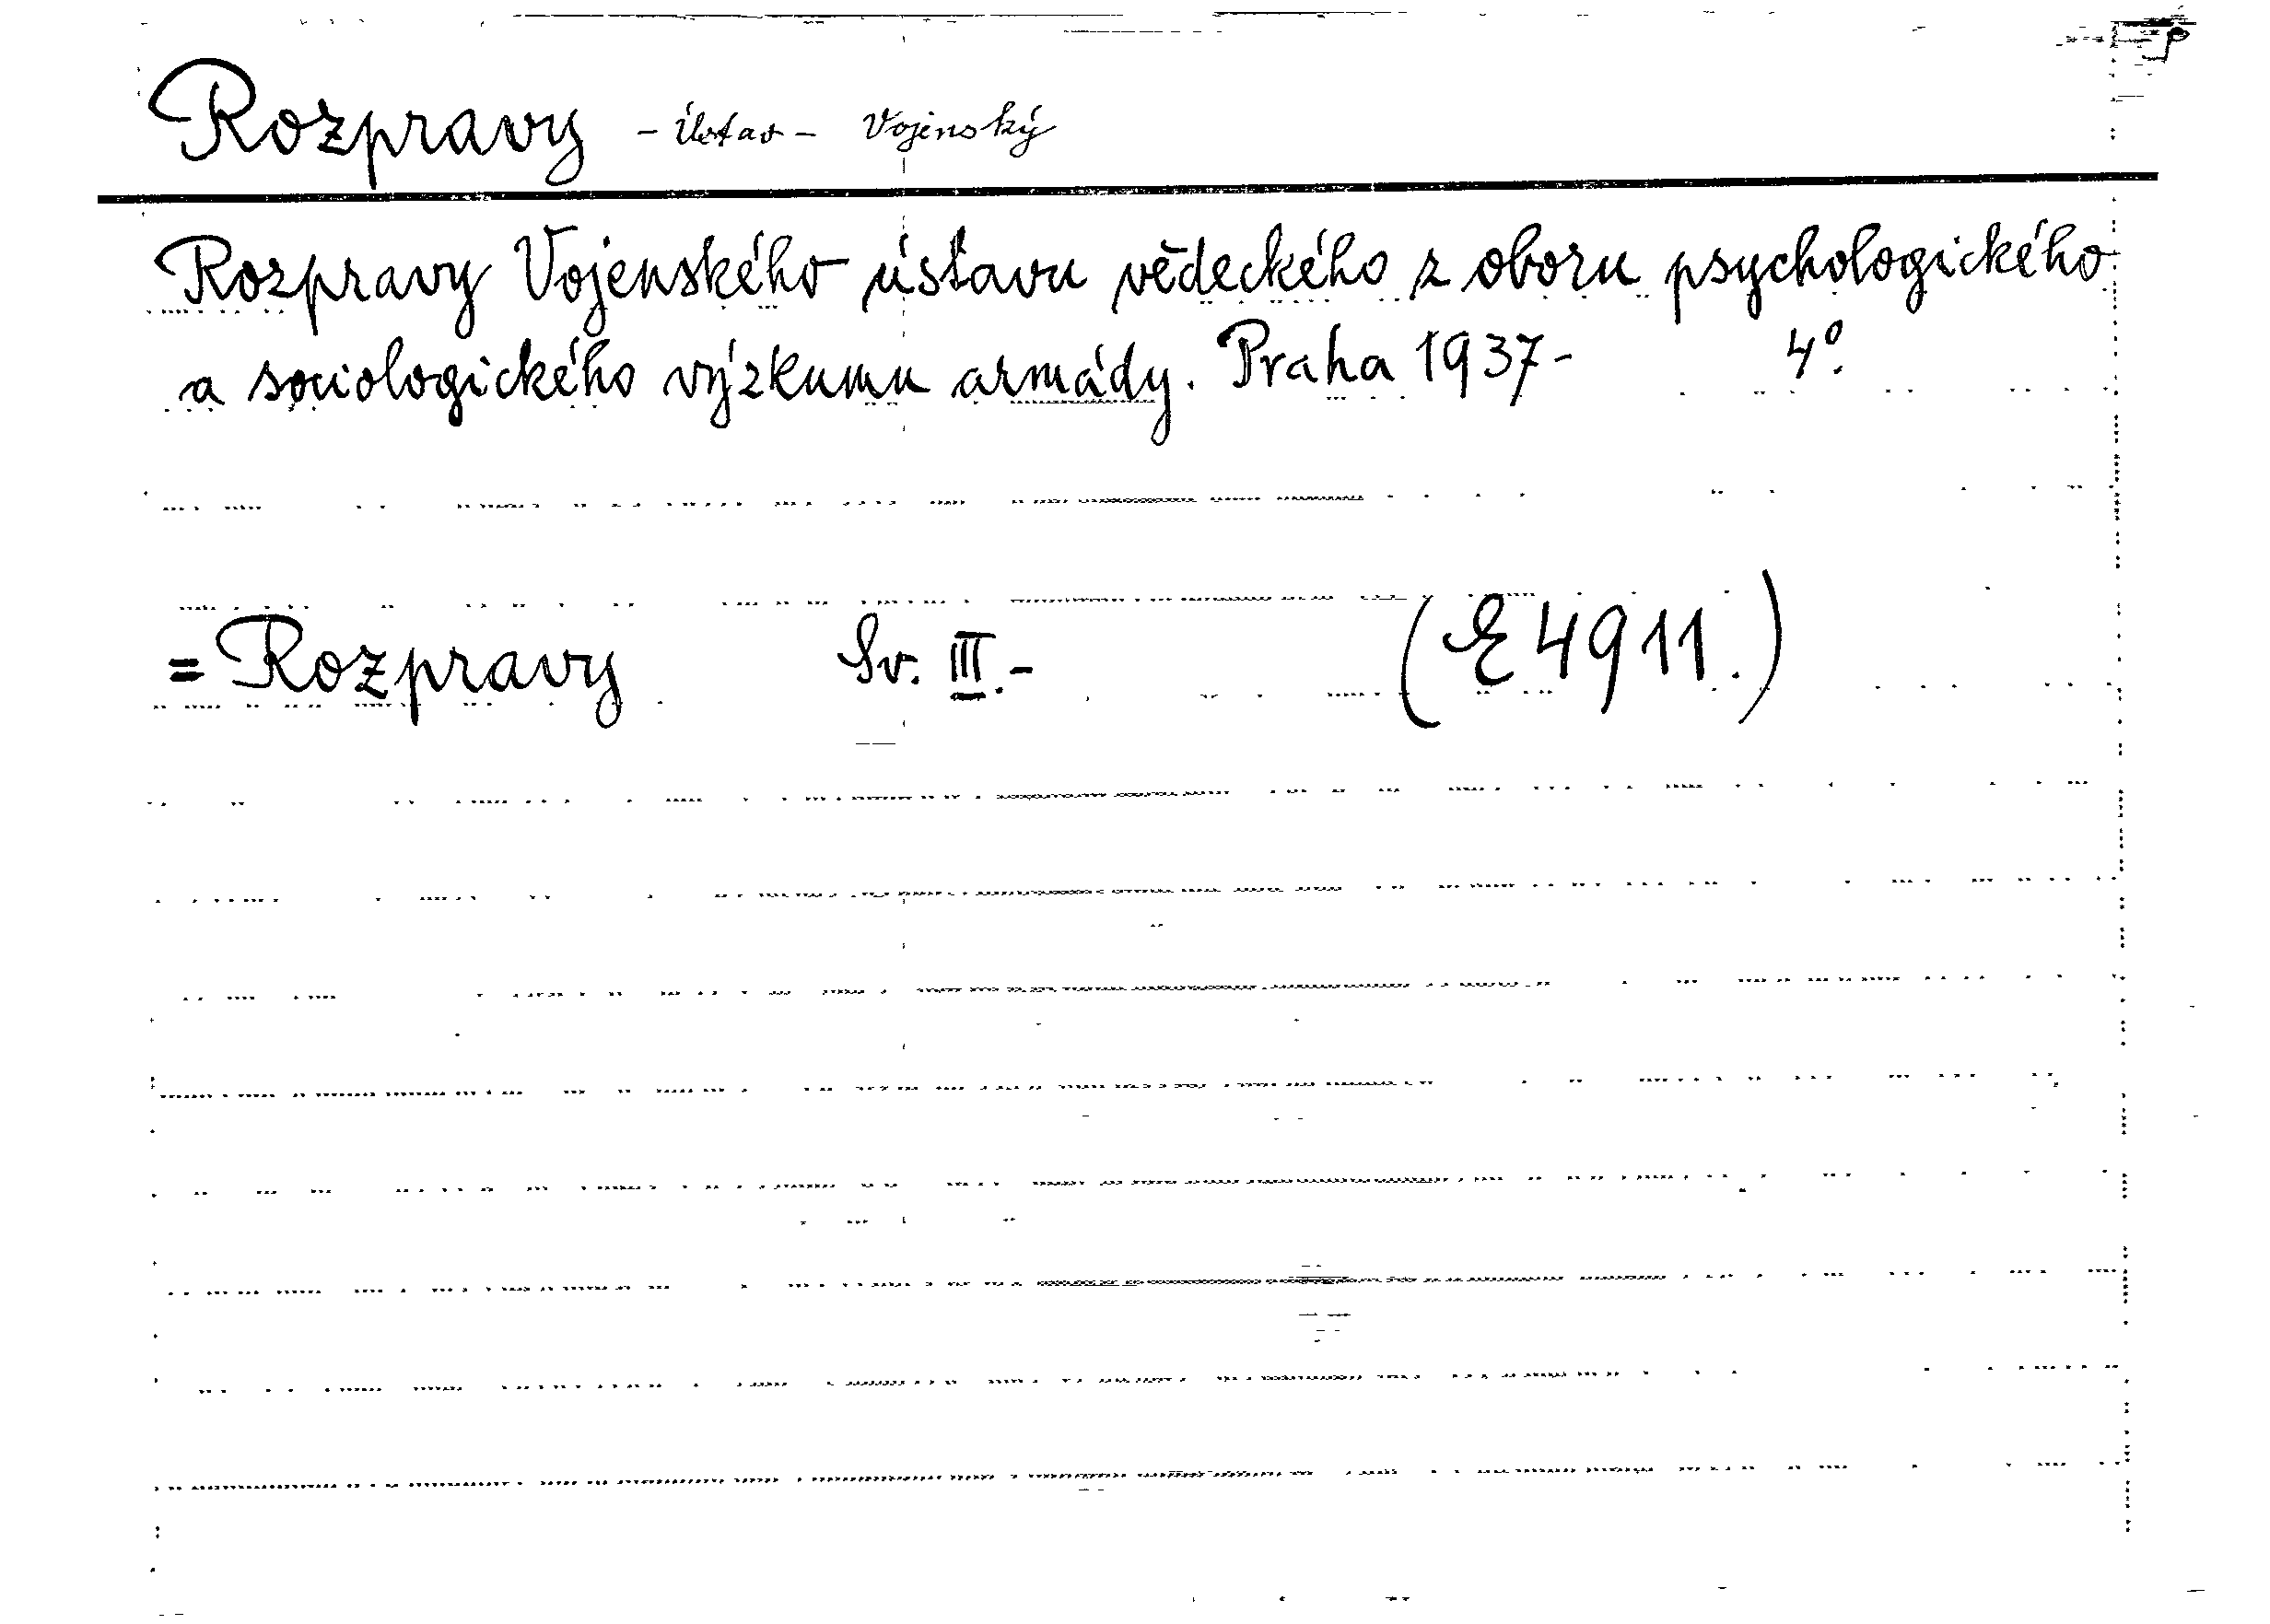 Rozpravy - Ústav - Vojenský
Rozpravy Vojenského ústavu vědeckého z oboru psychologického
a sociologického výzkumu armády. Praha 1937- 4°.
= Rozpravy Sv. III.- (E 4911.)